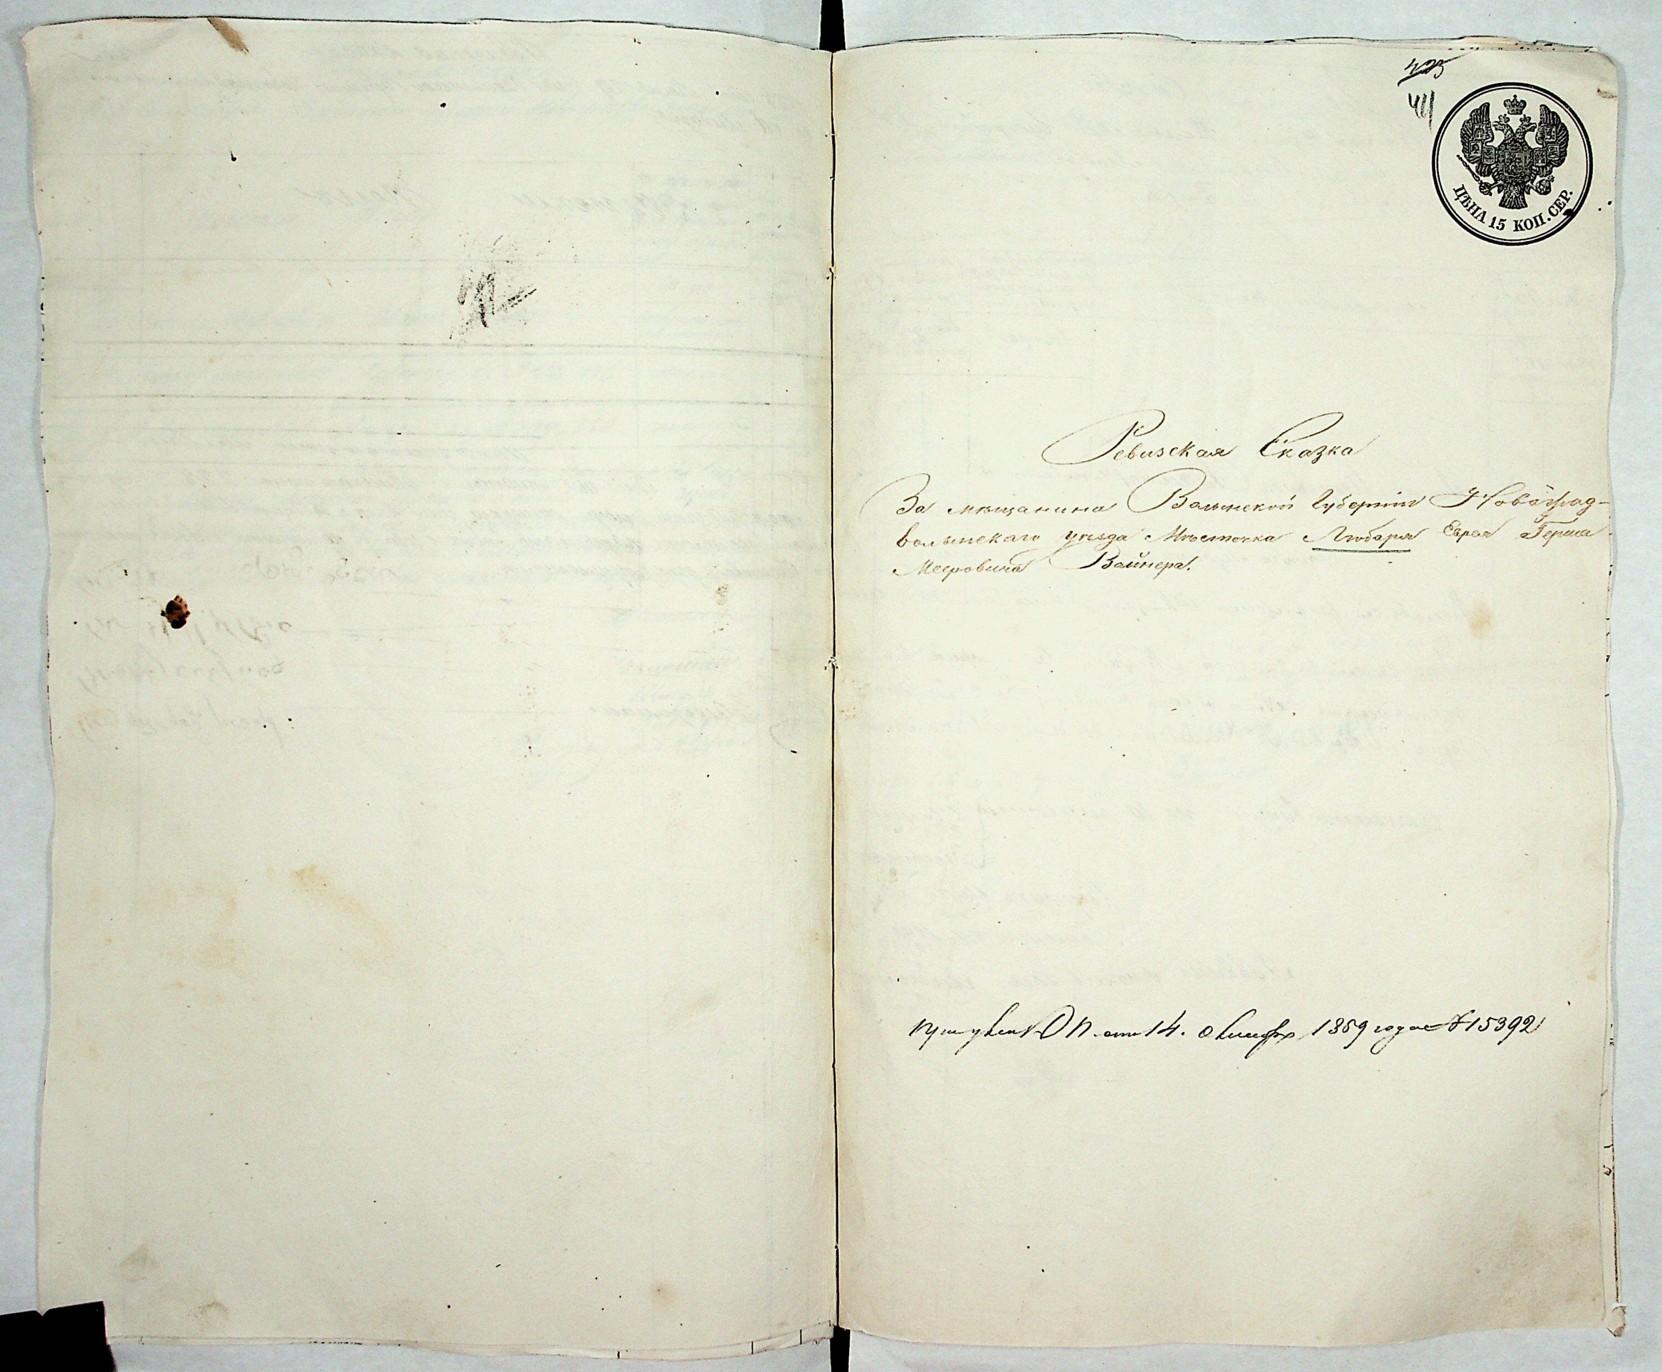 441
ЦѢНА 15 КОП. СЕР.
Ревизская Сказка
За мѣщанина Волынской Губерніи Новоград-
волынскаго уѣзда Мѣстечка Любаря Еврея Герша
Мееровича Вайнера.
14. октября 1859 года № 15392